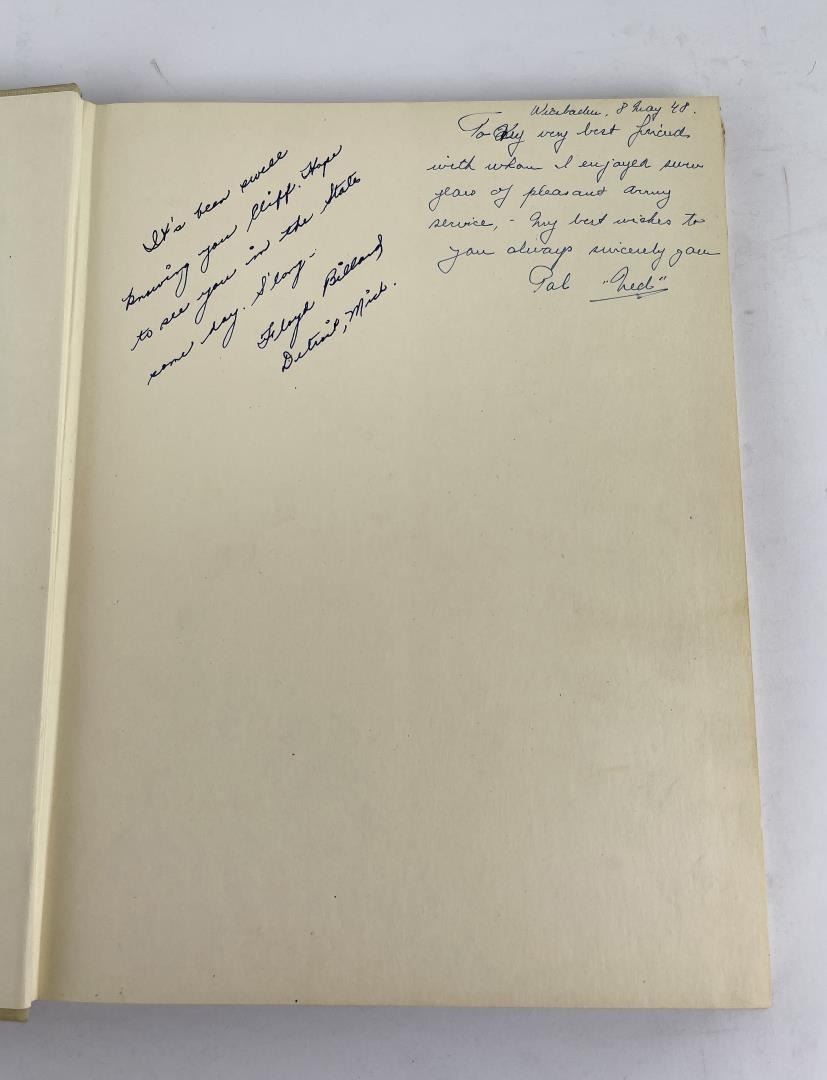 It's been swell
knowing you Cliff. Hope
to see you in the States
some day. S'long -
Floyd Billand
Detroit, Mich.
Wiesbaden, 8 May 48.
To My very best friends
with whom I enjoyed
years of pleasant Army
service, - My best wishes to
you always sincerely your
Pal "Ned"